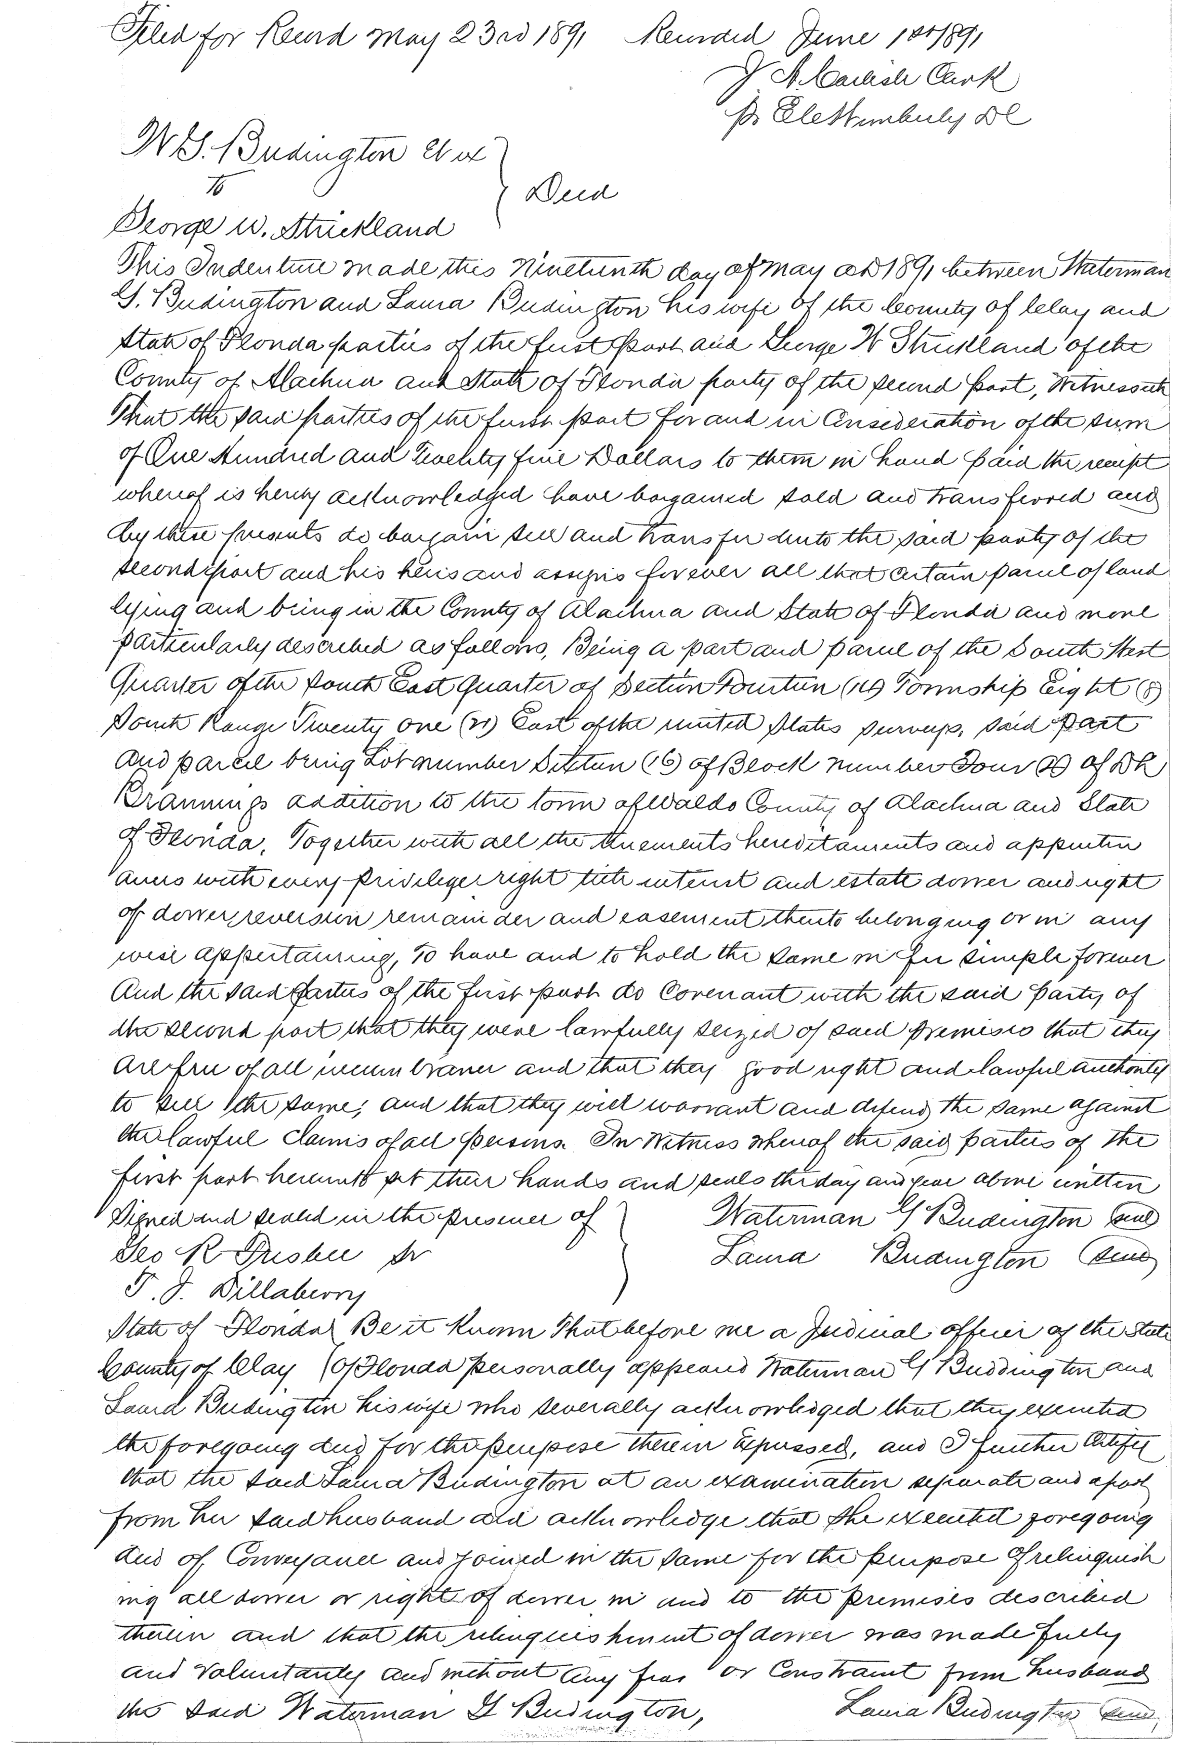 Filed for Record May 23rd 1891 Recorded June 1st 1891
J A. Carlisle Clerk
pr DC
W G. Budington et ux
To
Deed
George W. Strickland
This Indenture made this Nineteenth day of May AD 1891 between Waterman
G. Budington and Laura Budington his wife of the County of Clay and
State of Florida parties of the first part and George W Strickland of the
County of Alachua and State of Florida party of the second part, Witnesseth
That the said parties of the first part for and in Consideration of the sum
of One Hundred and Twenty five Dollars to them in hand paid the receipt
whereof is hereby acknowledged have bargained sold and transferred and
by these presents do bargain sell and transfer unto the said party of the
second part and his heirs and assigns forever all that certain parcel of land
lying and being in the County of Alachua and State of Florida and more
particularly described as follows, Being a part and parcel of the South West
Quarter of the South East Quarter of Section Fourteen (14) Township Eight (8)
South Range Twenty one (21) East of the united States surveys, said part
and parcel being Lot number Sixteen (16) of Block number Four (4) of
Brannings addition to the town of Waldo County of Alachua and State
of Florida, Together with all the tenements hereditaments and appurten
ances with every privilege right title interest and estate dower and right
of dower reversion remainder and easement thereto belonging or in any
wise appertaining, To have and to hold the same in fee simple forever
And the said parties of the first part do Covenant with the said party of
the second part that they were lawfully seized of said premises that they
are free of all incumbrance and that they good right and lawful authority
to sell the same; and that they will warrant and defend the same against
the lawful claims of all persons. In Witness whereof the said parties of the
first part hereunto set their hands and seals the day and year above written
Signed and sealed in the presence of Waterman G Budington seal
Geo R Frisbee Sr Laura Budington seal
T. J. Dillaberry
State of Florida Be it Known That before me a Judicial officer of the State
County of Clay of Florida personally appeared Waterman G Buddington and
Laura Budington his wife who severally acknowledged that they executed
the foregoing deed for the purpose therein Expressed, and I further Certify
that the said Laura Budington at an examination separate and apart
from her said husband did acknowledge that She executed foregoing
deed of Conveyance and joined in the same for the purpose of relinquish
ing all dower or right of dower in and to the premises described
therein and that the relinquishment of dower was made fully
and voluntarily and without any fear or Constraint from husband
the said Waterman G Budington, Laura Budington seal